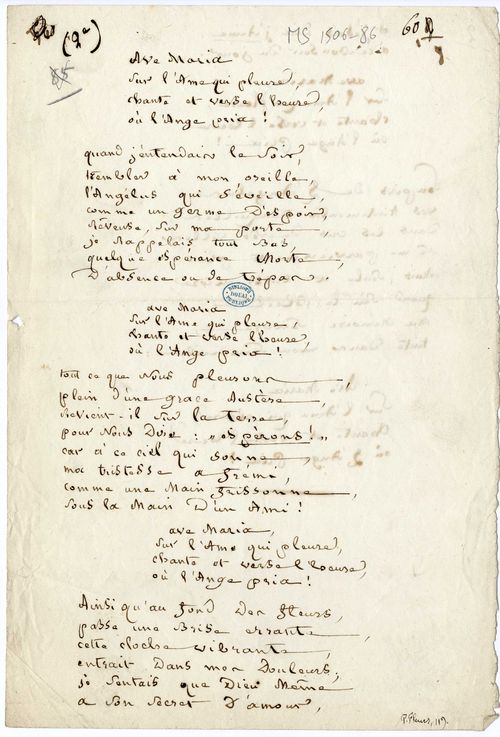 (2e)
MS 1506-86
60
85
Ave Maria
sur l'Ame qui pleure,
chante et verse l'heure,
où l'Ange pria !
quand j'entendais le Soir,
trembler à mon oreille,
l'Angélus qui s'éveille,
comme un germe D'espoir,
Rêveuse, sur ma porte,
je Rappelais tout Bas,
quelque espérance Morte,
D'absence ou de trépas.
BIBLIOTH. DOUAI PUBLIQUE
ave Maria
sur l'Ame qui pleure,
chante et verse l'heure,
où l'Ange pria !
tout ce que Nous pleurons,
plein D'une grace Austère,
Revient-il sur la terre
pour Nous Dire : "espérons !"
car à ce ciel qui sonne,
ma tristesse a frémi,
comme une Main frissonne,
sous la Main D'un Ami !
ave Maria,
sur l'Ame qui pleure,
chante et verse l'heure,
où l'Ange pria !
Ainsi qu'au fond Des fleurs,
passe une Brise errante,
cette cloche vibrante,
entrait Dans mes Douleurs ;
je sentais que Dieu Même
a son secret D'amour,
P. Fleurs, 119.